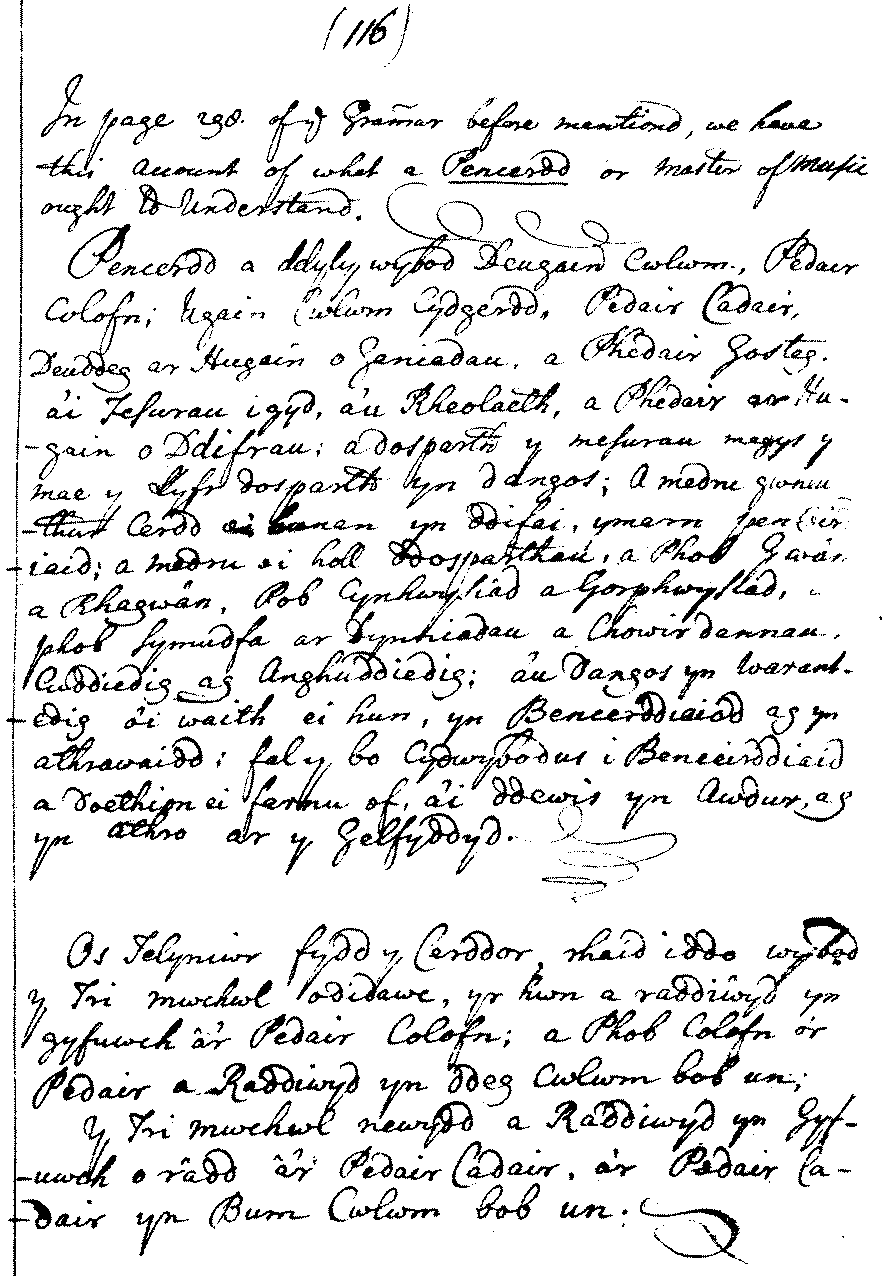 (116)
In page 298. of yͤ Gram̄ar before mention'd, we have
this Account of what a Pencerdd or Master of Musick
ought to Understand.
Pencerdd a ddyly wybod Deugain Cwlwm, Pedair
Colofn; Ugain Cwlwm Cydgerdd, Pedair Cadair,
Deuddeg ar Hugain o Ganiadau, a Phedair Gosteg.
a'i Fesurau i gyd, a'u Rheolaeth, a Phedair ar Hu-
-gain o Ddifrau; a dosparth y mesurau megys y
mae y Llyfr dosparth yn dangos; A medru gwneu
-thur Cerdd ei hunan yn ddifai, ymarn pencair
-iaid; a medru ei holl ddosparthau, a Phob Gwàn
a Rhagwàn, Pob Cynhwysiad a Gorphwysiad,
phob symudfa ar Dynniadau a Chowirdannau.
Cuddiedig ag Anghuddiedig; a'u Dangos yn warant-
-edig o'i waith ei hun, yn Bencerddiaidd ag yn
athrawaidd: fal y bo Cydwybodus i Benceirddiaid
a Doethion ei farnu ef, a'i ddewis yn Awdur, ag
yn athro ar y Gelfyddyd.
Os Telyniwr fydd y Cerddor, rhaid iddo wybod
y Tri mwchwl odidawc, yr hwn a raddiwyd yn
gyfuwch â'r Pedair Colofn; a Phob Colofn o'r
Pedair a Raddiwyd yn ddeg Cwlwm bob un;
y Tri mwchwl newydd a Raddiwyd yn Gyf-
-uwch o râdd â'r Pedair Cadair, a'r Pedair Ca-
-dair yn Bum Cwlwm bob un.